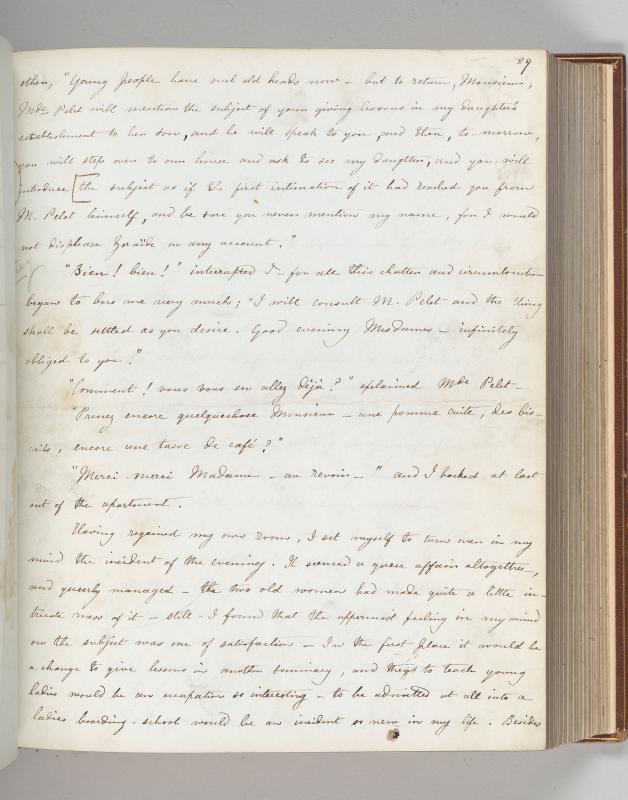 89
other, "Young people have such old heads now – but to return, Monsieur;
Mde Pelet will mention the subject of your giving lessons in my daughter's
establishment to her son, and he will speak to you, and then, to-morrow,
you will step over to our house and ask to see my daughter, and you will
introduce [the subject as if the first intimation of it had reached you from
M. Pelet himself, and be sure you never mention my name, for I would
not displease Zoraïde on any account."
"Bien! bien!" interrupted I – for all this chatter and circumlocution
began to bore me very much; "I will consult M. Pelet and the thing
shall be settled as you desire. Good evening Mesdames – infinitely
obliged to you."
"Comment! vous vous en allez déjà?" exclaimed Mde Pelet –
"Prenez encore quelquechose Monsieur – une pomme cuite, des bis-
cuits, encore une tasse de café?"
"Merci – merci Madame – au revoir – " and I backed at last
out of the apartment.
Having regained my own room, I set myself to turn over in my
mind the incident of the evening. It seemed a queer affair altogether,
and queerly managed – the two old women had made quite a little in-
tricate mess of it – still – I found that the uppermost feeling in my mind
on the subject was one of satisfaction – In the first place it would be
a change to give lessons in another seminary, and then to teach young
ladies would be an occupation so interesting – to be admitted at all into a
ladies boarding-school would be an incident so new in my life. Besides